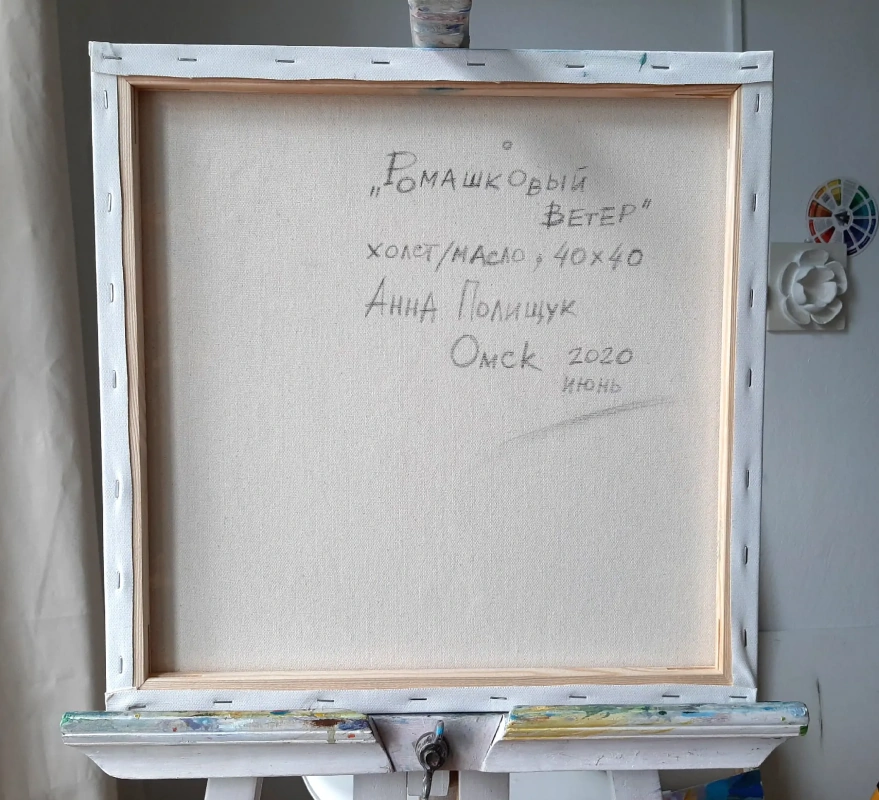 „Ромашковый
Ветер"
холст/масло, 40×40
Анна Полищук
Омск 2020
июнь